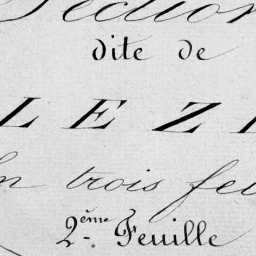 Section
dite de
LEZI
En trois feu
2.ème Feuille